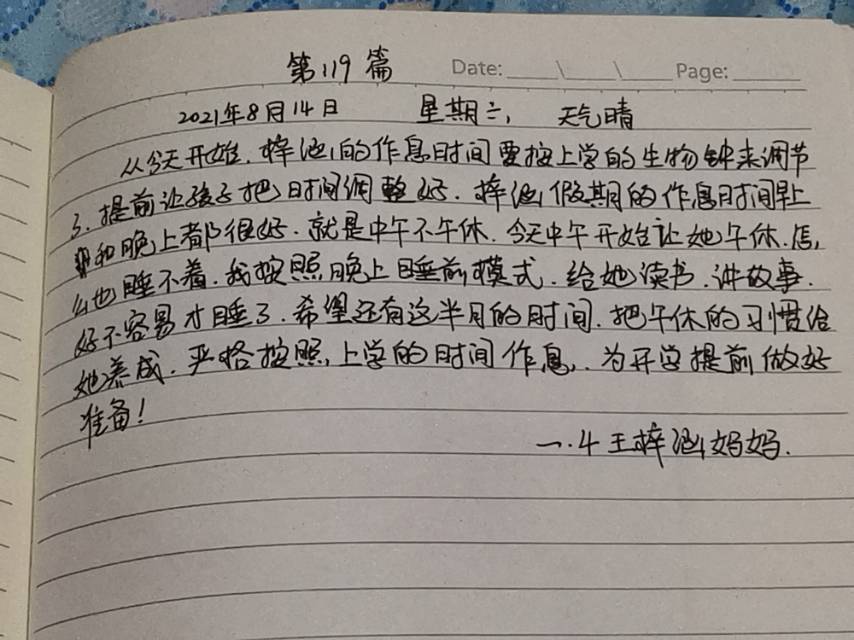 第119篇
Date: ____\____\____ Page: ______
2021年8月14日 星期六, 天气晴
从今天开始.梓涵的作息时间要按上学的生物钟来调节
了.提前让孩子把时间调整好.梓涵假期的作息时间早上
和晚上都很好.就是中午不午休.今天中午开始让她午休.怎,
么也睡不着.我按照晚上睡前模式.给她读书.讲故事.
好不容易才睡了.希望还有这半月的时间.把午休的习惯给
她养成.严格按照,上学的时间作息,.为开学提前做好
准备!
一.4王梓涵妈妈.